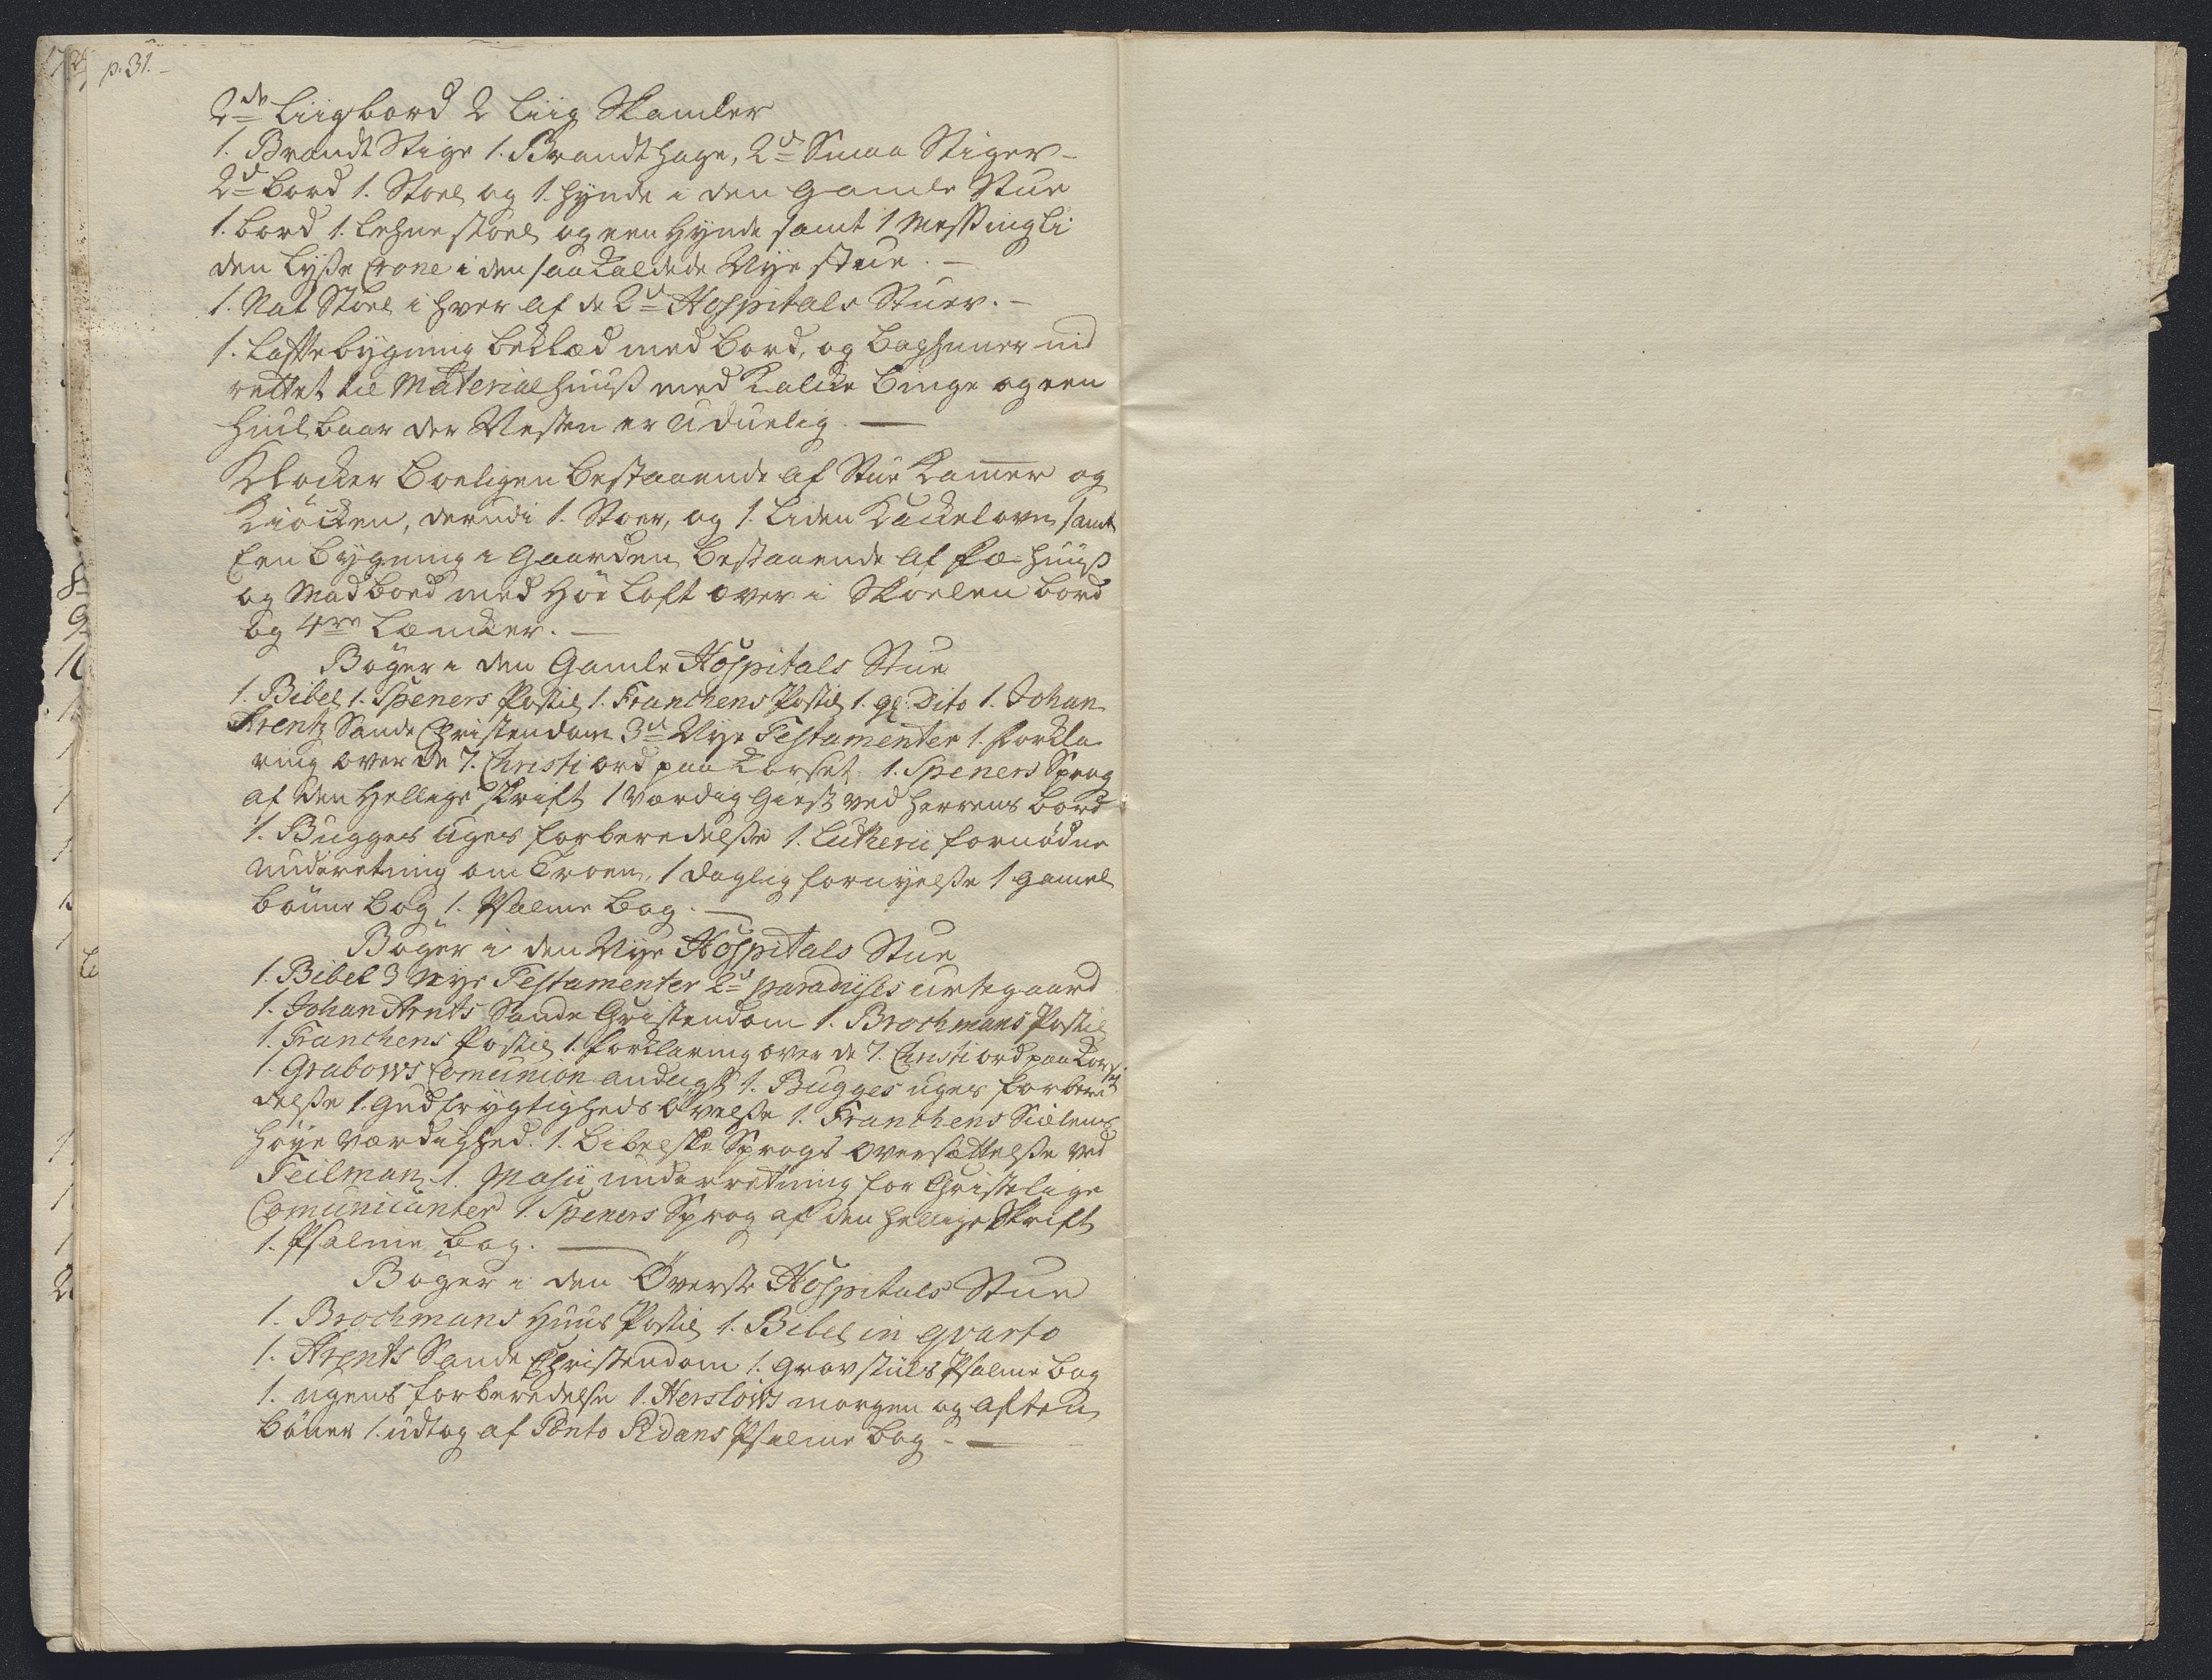 p. 31.
2de Liigbord 2 Liig Skamler
1. Brandt Stige 1. Brandthage, 2de Smaa Stiger
2de Bord 1. Stoel og 1. Hynde i den Gamle Stue
1. Bord 1. Lehnestoel og een Hynde samt 1 Messing Li
den Lyse Crone i den saakaldede Nye Stue.
1. Nat Stoel i hver af de 2de Hospitals Stuer.
1. bygning beklæd med Bord, og ind
rettet til Materialhuuß med Kalcke Binge og een
Hiulbaar der Næsten er Uduelig.
Klocker Boeligen bestaaende af Stue Kammer og
Kiöcken, derudi 1. Stoer, og 1. Liden Kackelovn samt
Een bygning i Gaarden bestaaende af Fæ-huuß
og Madboed med Höe Loft over i Skoelen bord
og 4re Bæncker.
Böger i den Gamle Hospitals Stue
1. Bibel 1. Speners Postil 1. Franchens Postil 1. gl: Dito 1. Johan
Arentz Sande Christendom 3de Nye Testamenter 1. Forkla
ring over de 7. Christi ord paa Korset. 1. Speners Sprog
af den Hellige Skrift 1 Værdig Giest ved Herrens Bord
1. Bugges Uges forberedelße 1. Lutherii fornødne
underetning om Troen, 1 Daglig fornyelße 1 gamel
Bönne Bog 1. Psalme Bog.
Böger i den Nye Hospitals Stue
1. Bibel 3 Nye Testamenter 2de paradiises urtegaard
1. Johan Arnts Sande Christendom 1. Brochmans Postil
1. Franchens Postil 1. Forklaring over de 7. Christi ord paa Korset
1. Grabows Comunion andagt 1. Bugges uges forbere
delße 1. Gudfrygtigheds Övelße 1. Franchens Siælens
höye Værdighed. 1. Bibelske Sprogs Oversættelße ved
Feilman 1. Masii underretning for Christelige
Comunicanter 1. Speners Sprog af den hellige Skrift
1. Psalme Bog.
Böger i den Øverste Hospitals Stue
1. Brochmans Huus Postil 1. Bibel in qvarto
1. Arents Sande Christendom 1. Grov stiils Psalme Bog
1. ugens forberedelse 1. Herslows morgen og aften
bönner 1. udtog af Ponto Pidans Psalme Bog